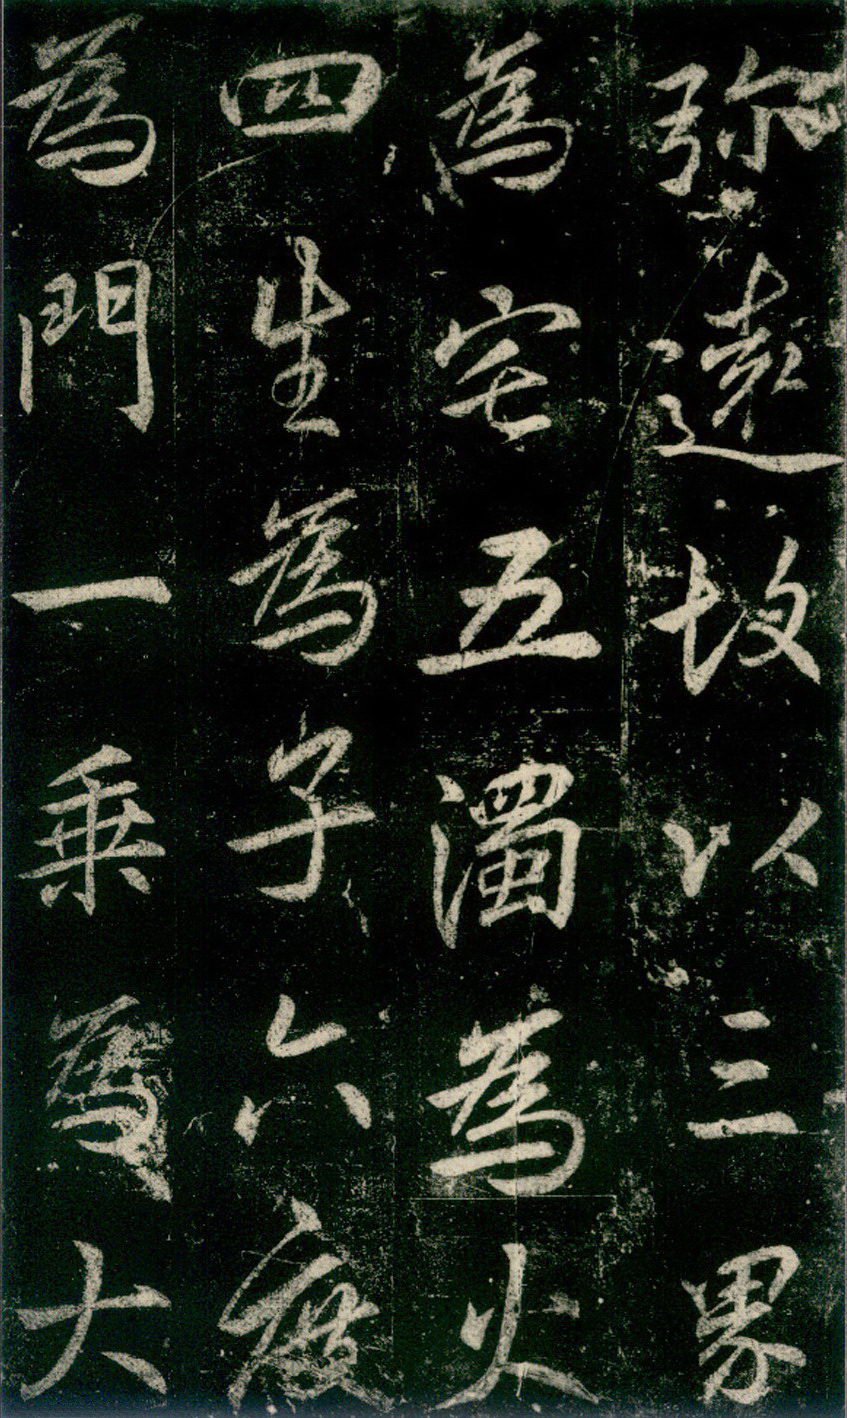 弥遠故以三界
為宅五濁為火
四生為子六度
為門一乗為大